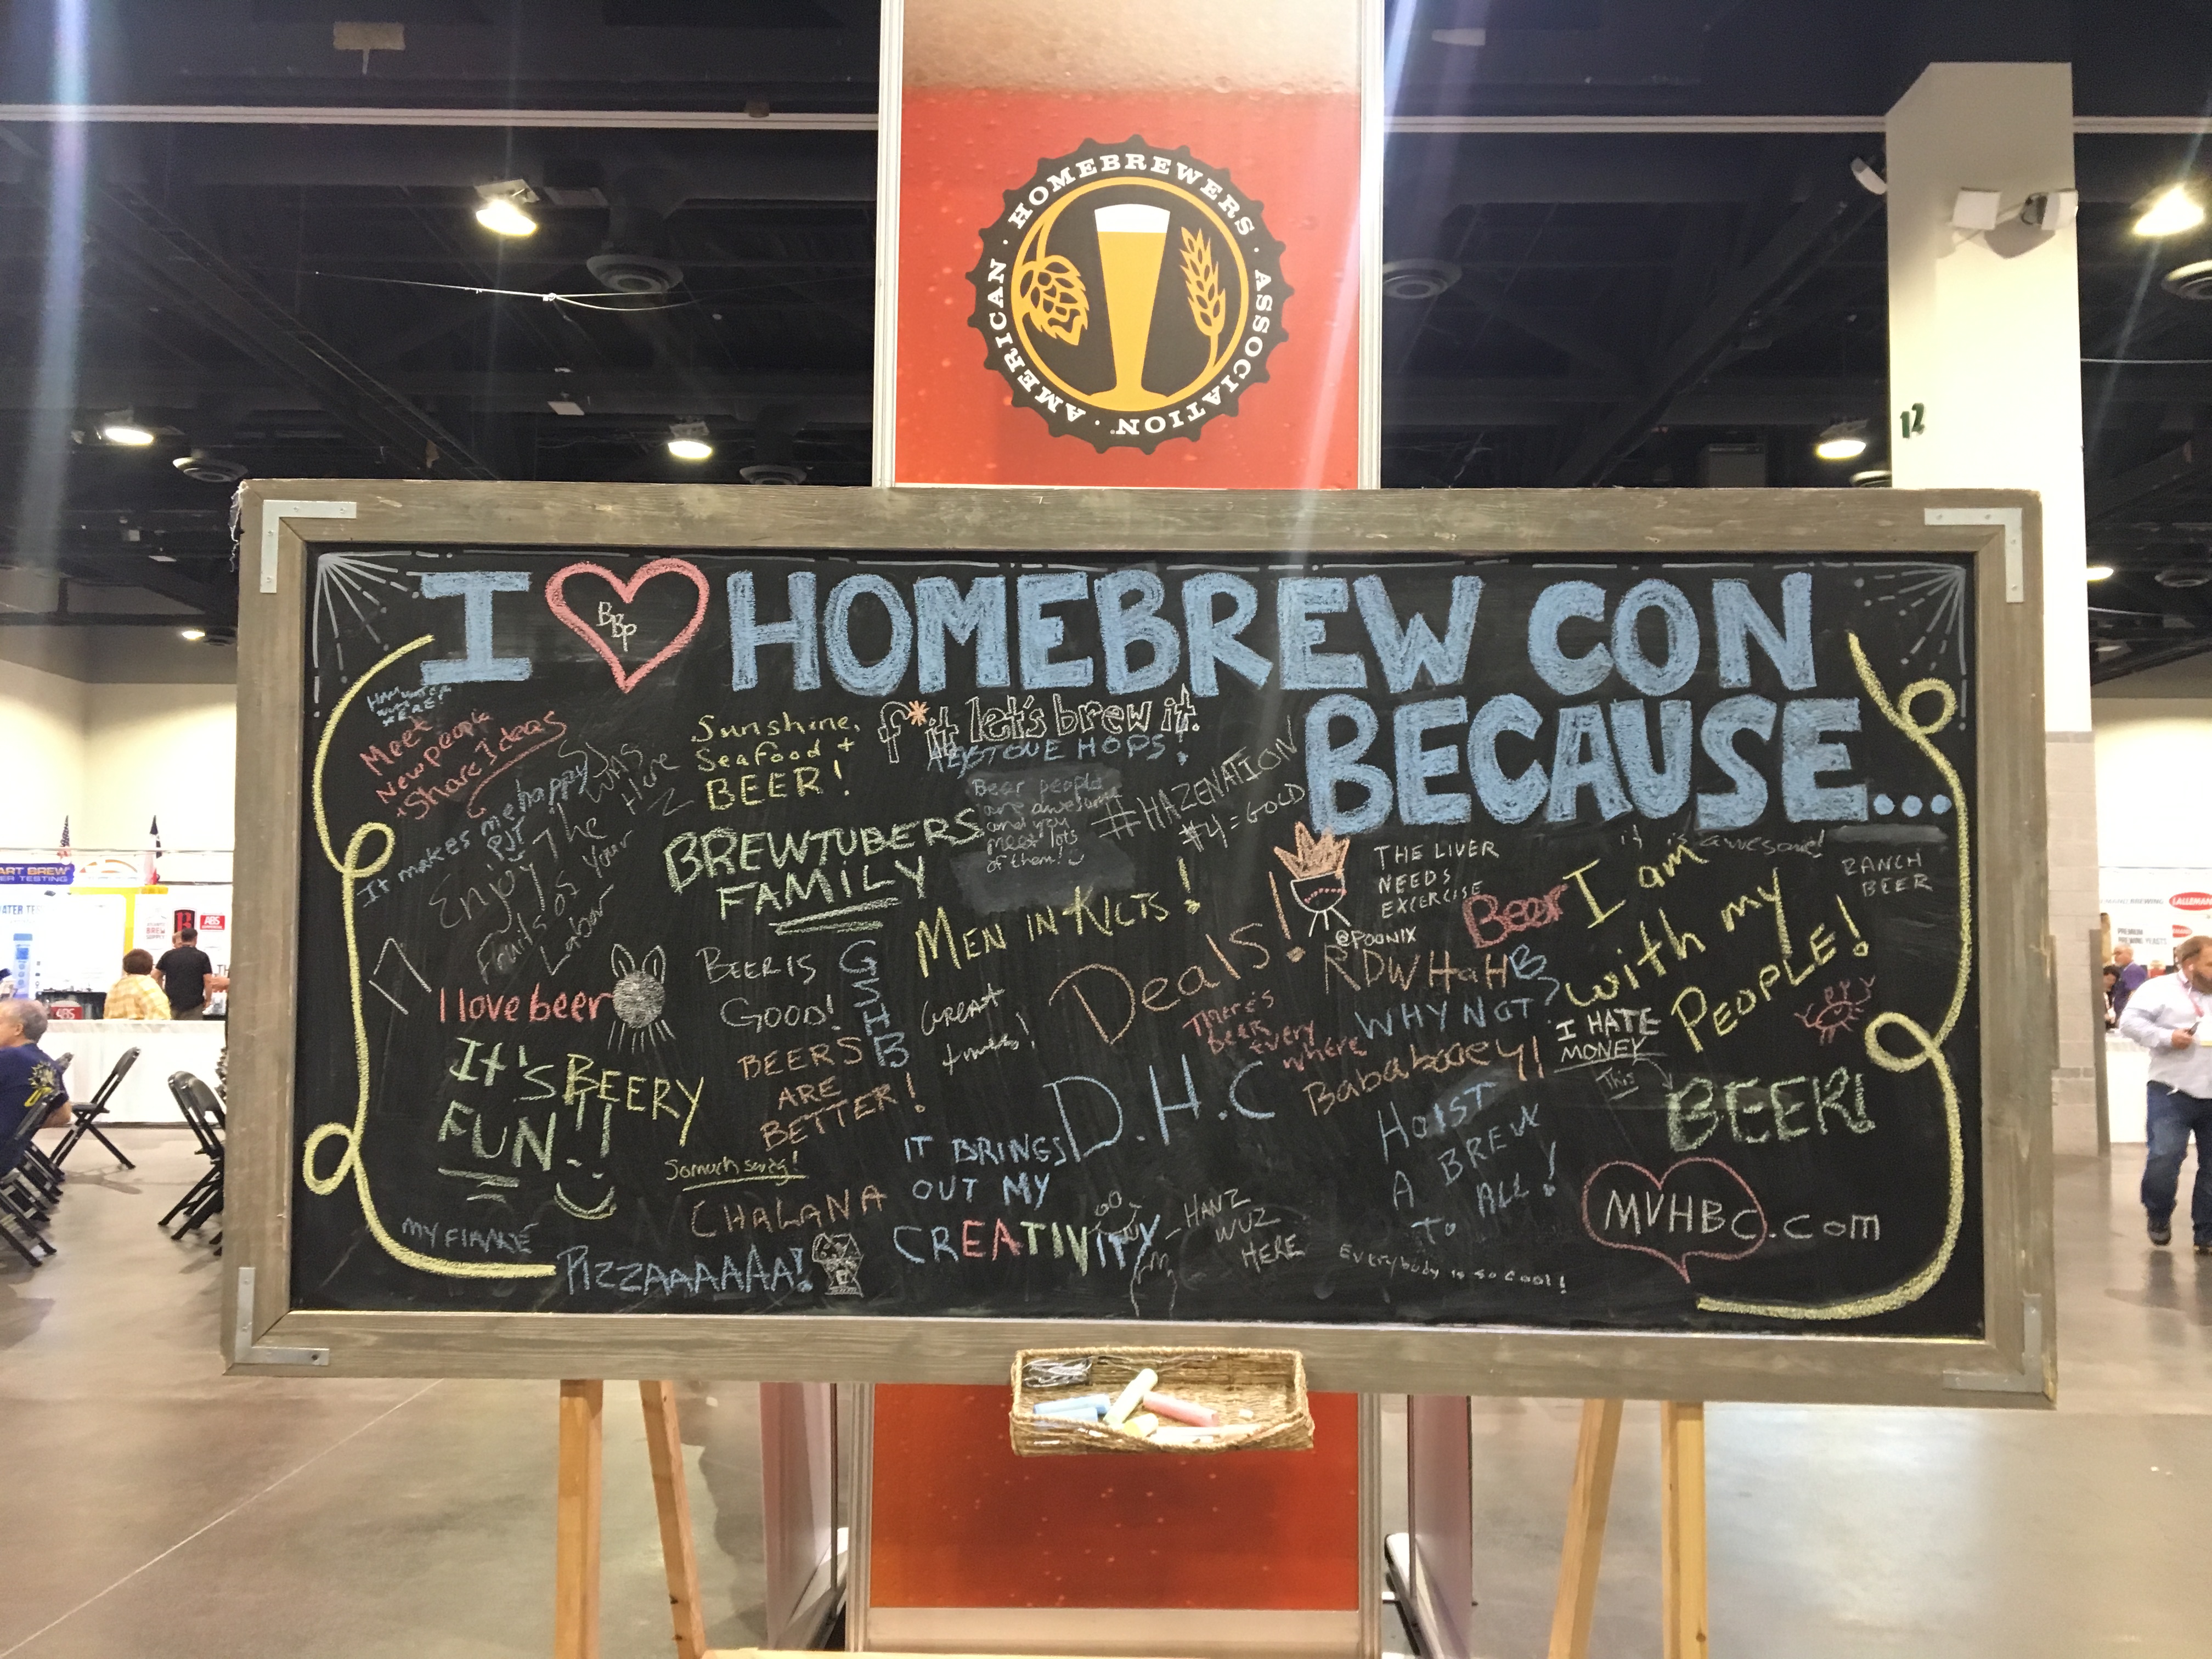 · AMERICAN · HOMEBREWERS · ASSOCIATION
12
I ♥ HOMEBREW CON
BBP
BECAUSE...
HERE!
Meet
New people
+ Share Ideas
It makes me happy
PJT
I was
Here
Enjoy The
Fruits of Your
Labor
Sunshine,
Seafood +
BEER!
f*it let's brew it.
KEYSTONE HOPS!
Beer people
are awesome
and you
meet lots
of them!
#HAZENATION
#4=GOLD
BREWTUBERS
FAMILY
MEN IN KILTS!
THE LIVER
NEEDS
EXCERCISE
@POONIX
Beer
it is awesome!
RANCH
BEER
I am
with my
PEOPLE!
I love beer
BEER IS
GOOD!
GSHB
Great
times!
Deals!
RDWHaHB
There's
beer
every
where
WHY NOT?
I HATE
MONEY
This
Bababooey!
BEER!
IT'S BEERY
FUN!!
BEERS
ARE
BETTER!
D.H.C
HOIST
A BREW
TO ALL!
Somuch swag!
IT BRINGS
OUT MY
CREATIVITY
CHALANA
MY FIANCÉ
PIZZAAAAAA!
HANZ
WUZ
HERE
Everybody is so cool!
MVHBC.com
ART BREW
ER TESTING
ABS
LALLEMAN
PREMIUM
BREWING YEASTS